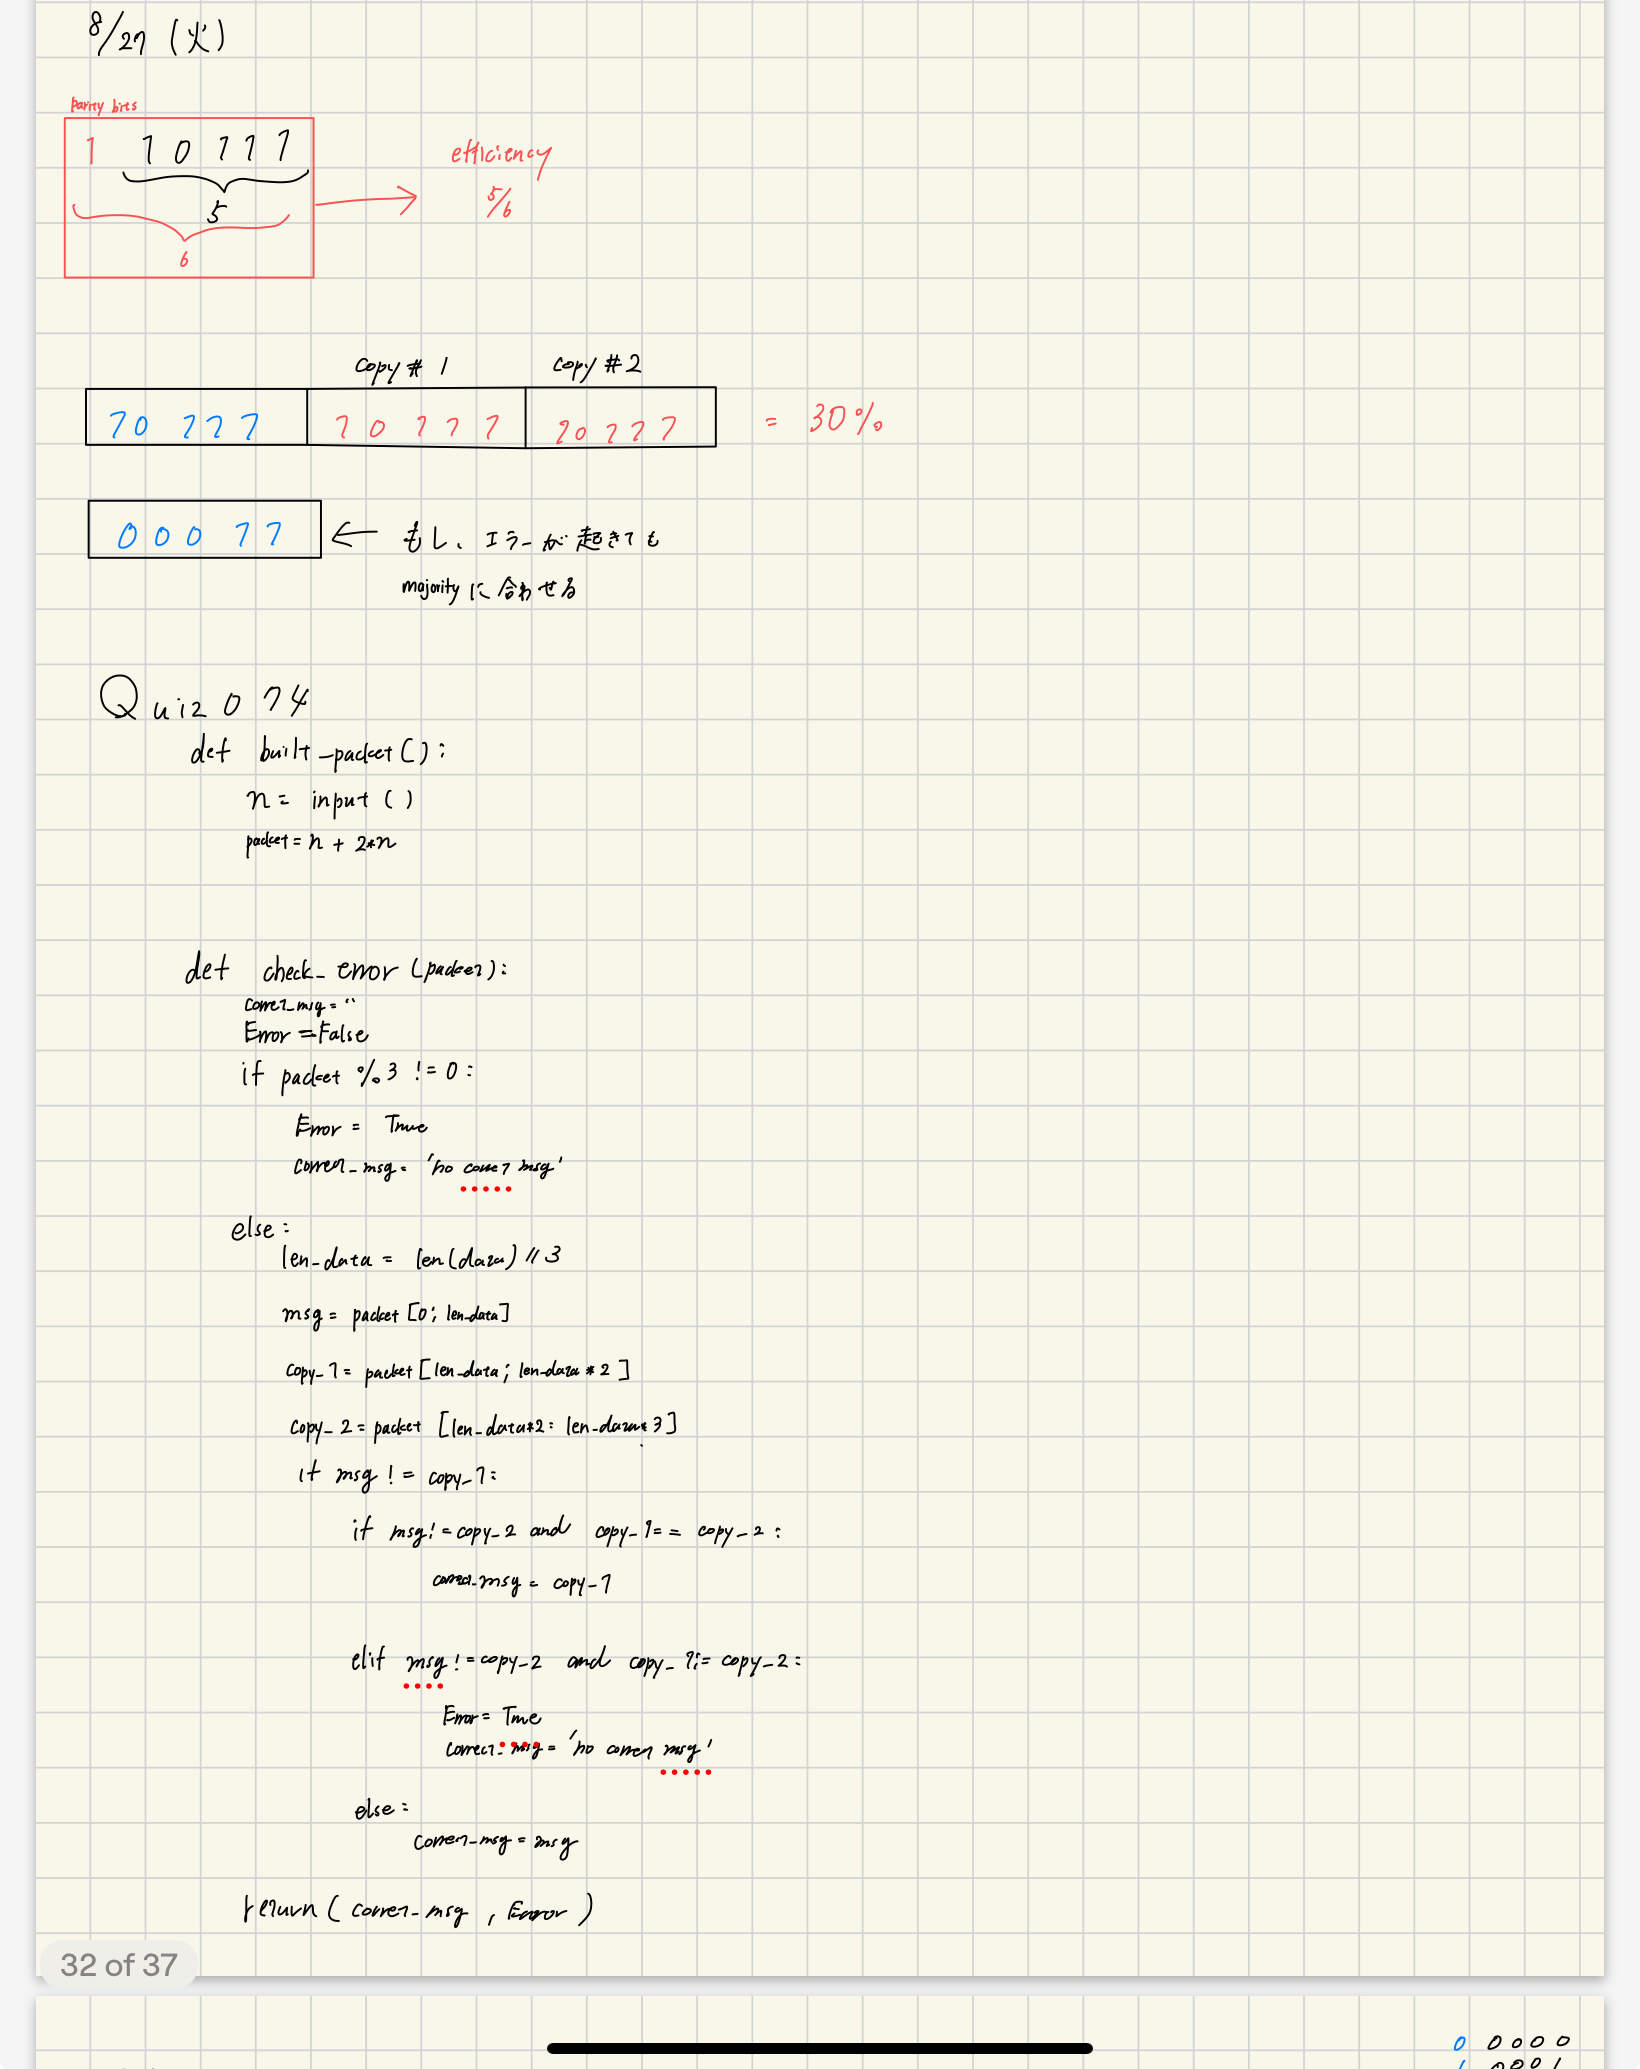 8/27 (火)
parity bits
1 1 0 1 1 1
5
6
efficiency
5/6
copy # 1 copy #2
10 111 10111 10111 = 30%
0 0 0 1 1 ← もし、エラーが起きても
majorityに合わせる
Quiz 014
def built_packet():
n = input ()
packet = n + 2*n
def check_error (packet):
correct_msg = ''
Error = False
if packet % 3 != 0 :
Error = True
correct_msg = 'no correct msg'
else :
len_data = len(data) // 3
msg = packet [0 ; len_data]
copy_1 = packet [len_data ; len_data * 2 ]
copy_2 = packet [len_data*2 : len_data*3]
if msg != copy_1 :
if msg != copy_2 and copy_1 == copy_2 :
correct_msg = copy_1
elif msg != copy_2 and copy_1 != copy_2 :
Error = True
correct_msg = 'no correct msg'
else :
correct_msg = msg
return ( correct_msg , Error )
32 of 37
0 0 0 0 0
1 0 0 0 1